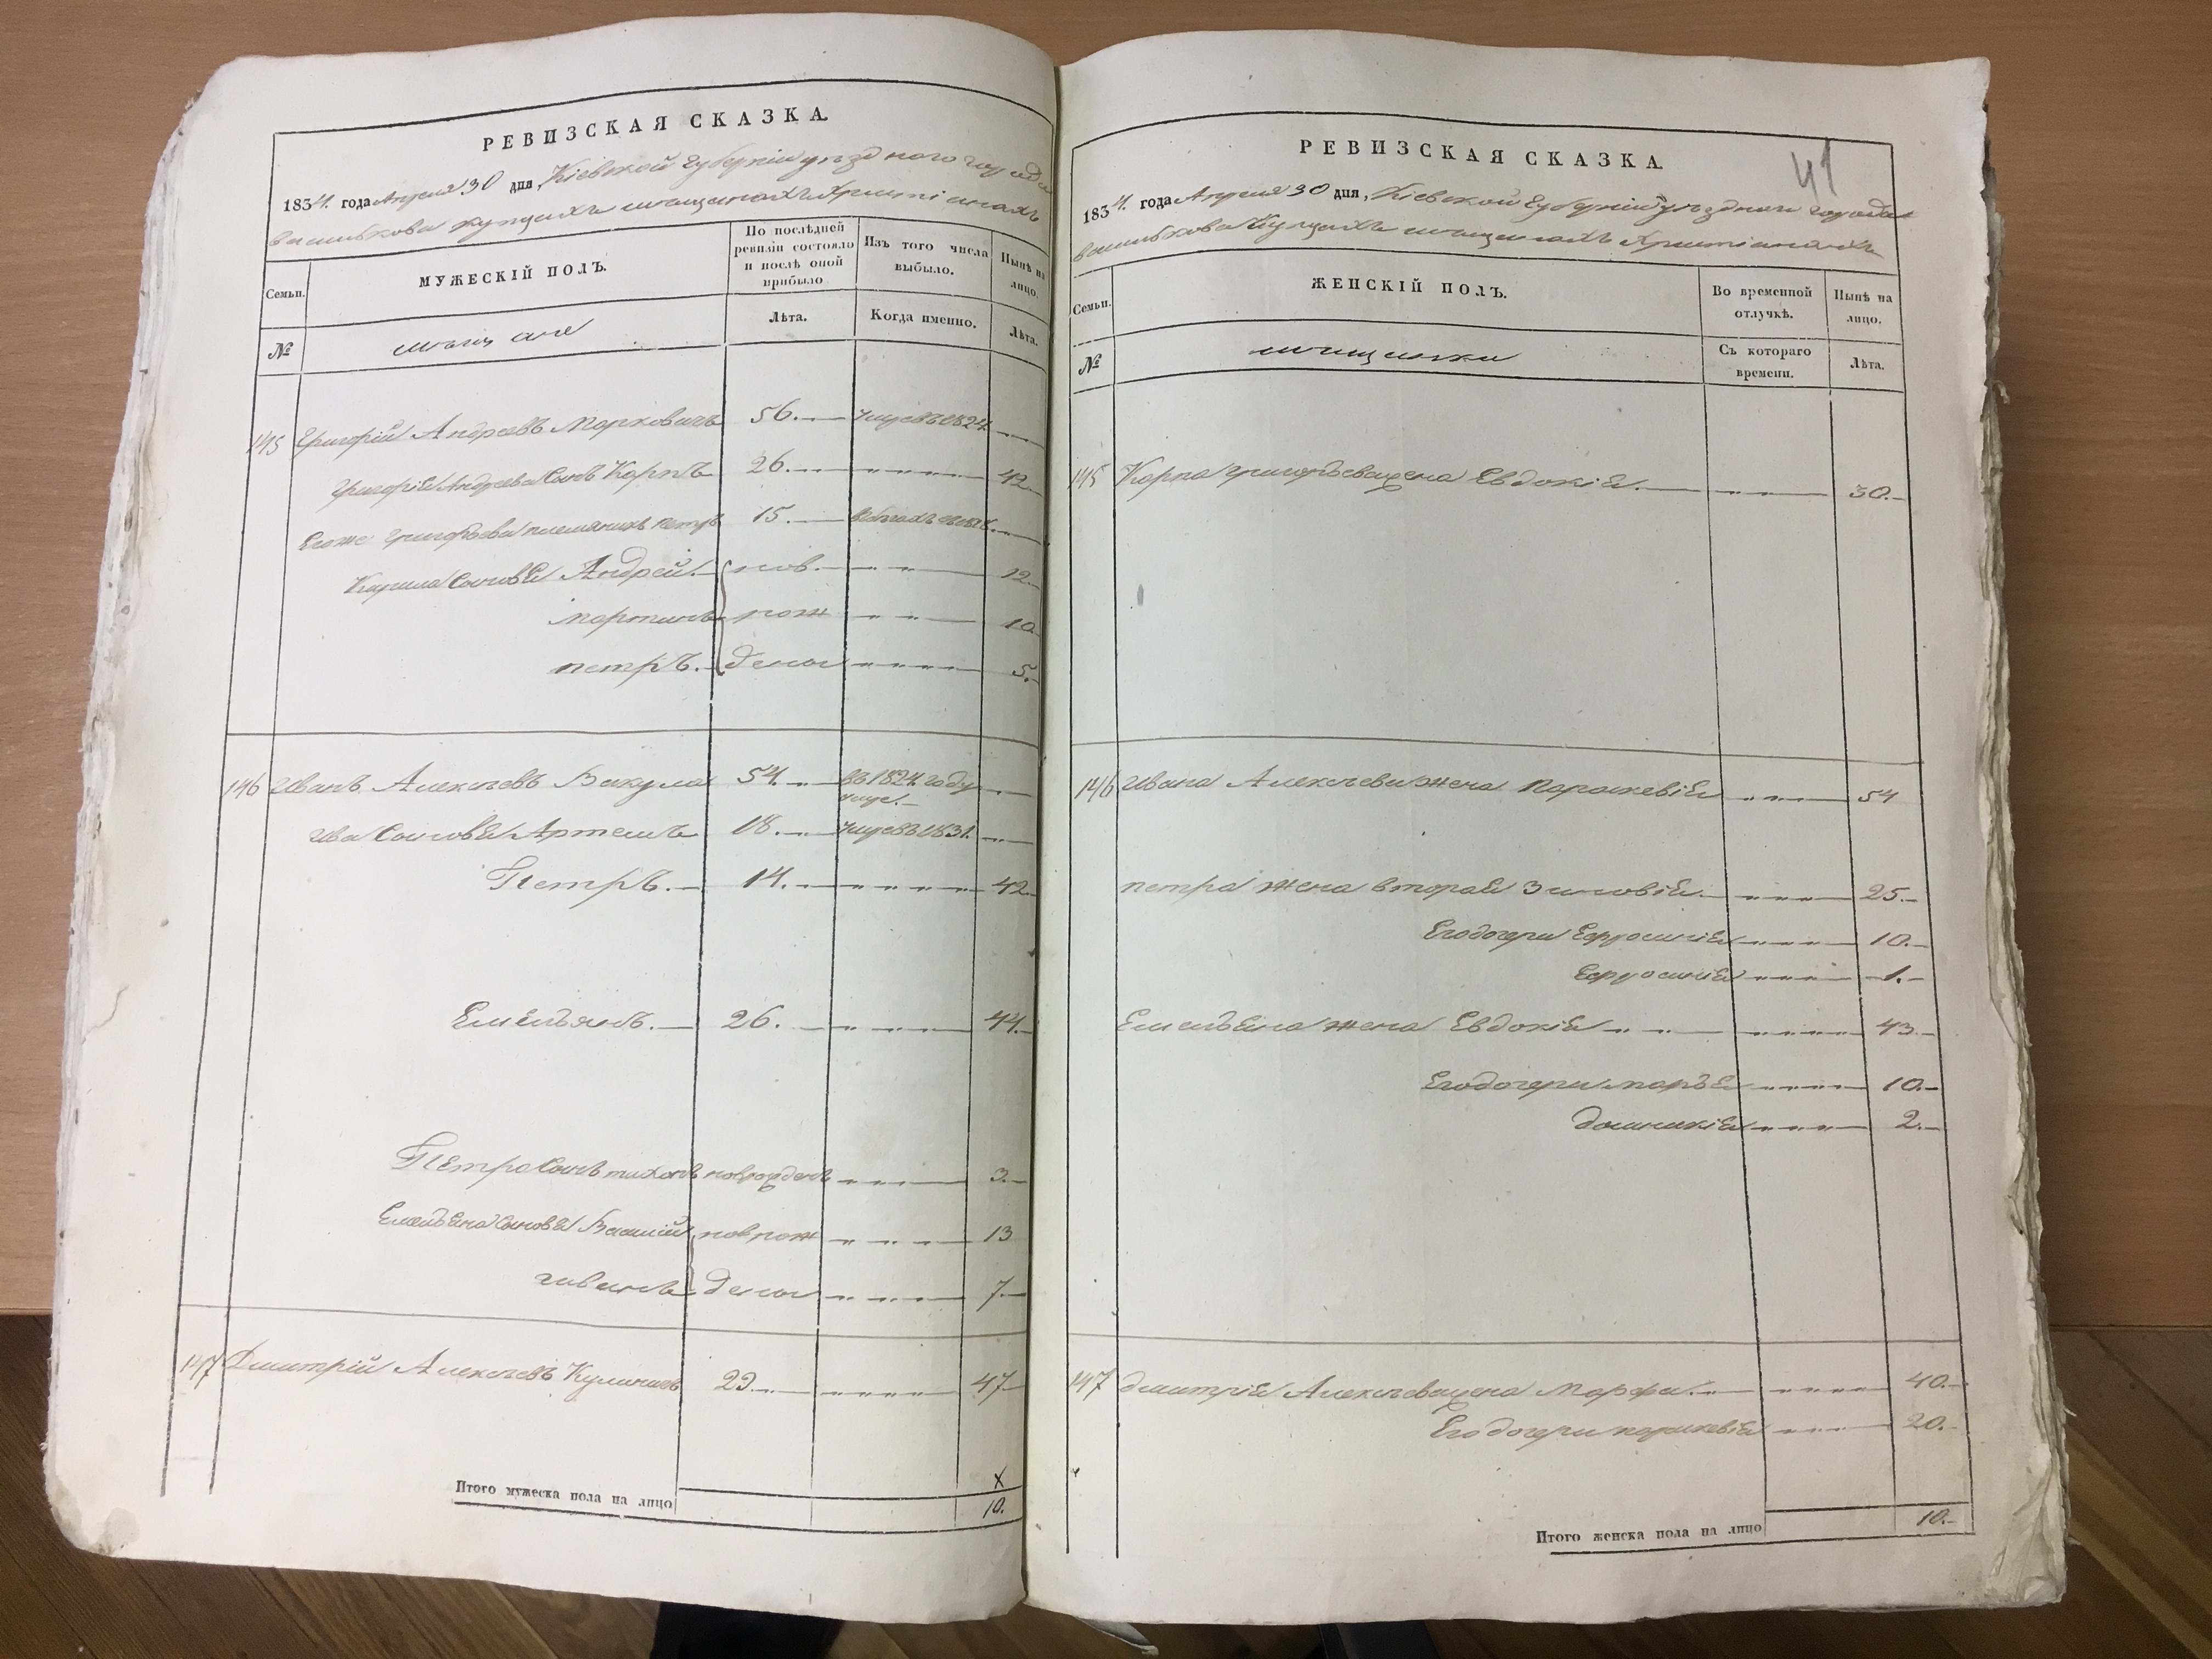 РЕВИЗСКАЯ СКАЗКА.
1834. года Апреля 30 дня, Кіевской Губерніи уѣздного города
василькова купцахъ мещанахъ Христіанахъ
Семьи.
МУЖЕСКІЙ ПОЛЪ.
По послѣдней ревизіи состояло и послѣ оной прибыло
Изъ того числа выбыло.
Нынѣ на лицо.
№
мещане
Лѣта.
Когда именно.
Лѣта.
145 Григорій Андреевъ Марковичъ 56. умре въ 1824
Григорія Андреева Сынъ Карпъ 26. 42
Егоже Григорьева племяникъ петръ 15.
Сыновья Андрей. нов. 12.
мартинъ рож 10
петръ. деные 5.
146 Иванъ Алексѣевъ Вакула 54. въ 1824. году
умре.
Ива Сыновья Артемъ 18. умре въ 1831.
Петръ. 14. 42
Емельянъ. 26. 44.
Петра Сынъ тихонъ новрожденъ 3.
Емельяна Сыновья Василій новрож 13
иванъ деные 7.
147 Дмитрій Алексѣевъ 29. 47
Итого мужеска пола на лицо
х
10.
41
РЕВИЗСКАЯ СКАЗКА.
1834. года Апреля 30 дня, Кіевской Губерніи уѣздного города
василькова Купцахъ мещанахъ Христіанахъ
Семьи.
ЖЕНСКІЙ ПОЛЪ.
Во временной отлучкѣ.
Нынѣ на лицо.
№
мещанки
Съ котораго времени.
Лѣта.
145 Карпа Григорьева жена Евдокія. 30.
146 Ивана Алексѣева жена Параскевія 54
петра жена вторая Зиновія 25.
Его дочери Ефросинія 10.
Ефросинія 1.
Емельяна жена Евдокія 43
Его дочери марья 10.
домникія 2.
147 дмитрія Алексѣева жена Марфа. 40.
Его дочери параскевія 20.
Итого женска пола на лицо 10.